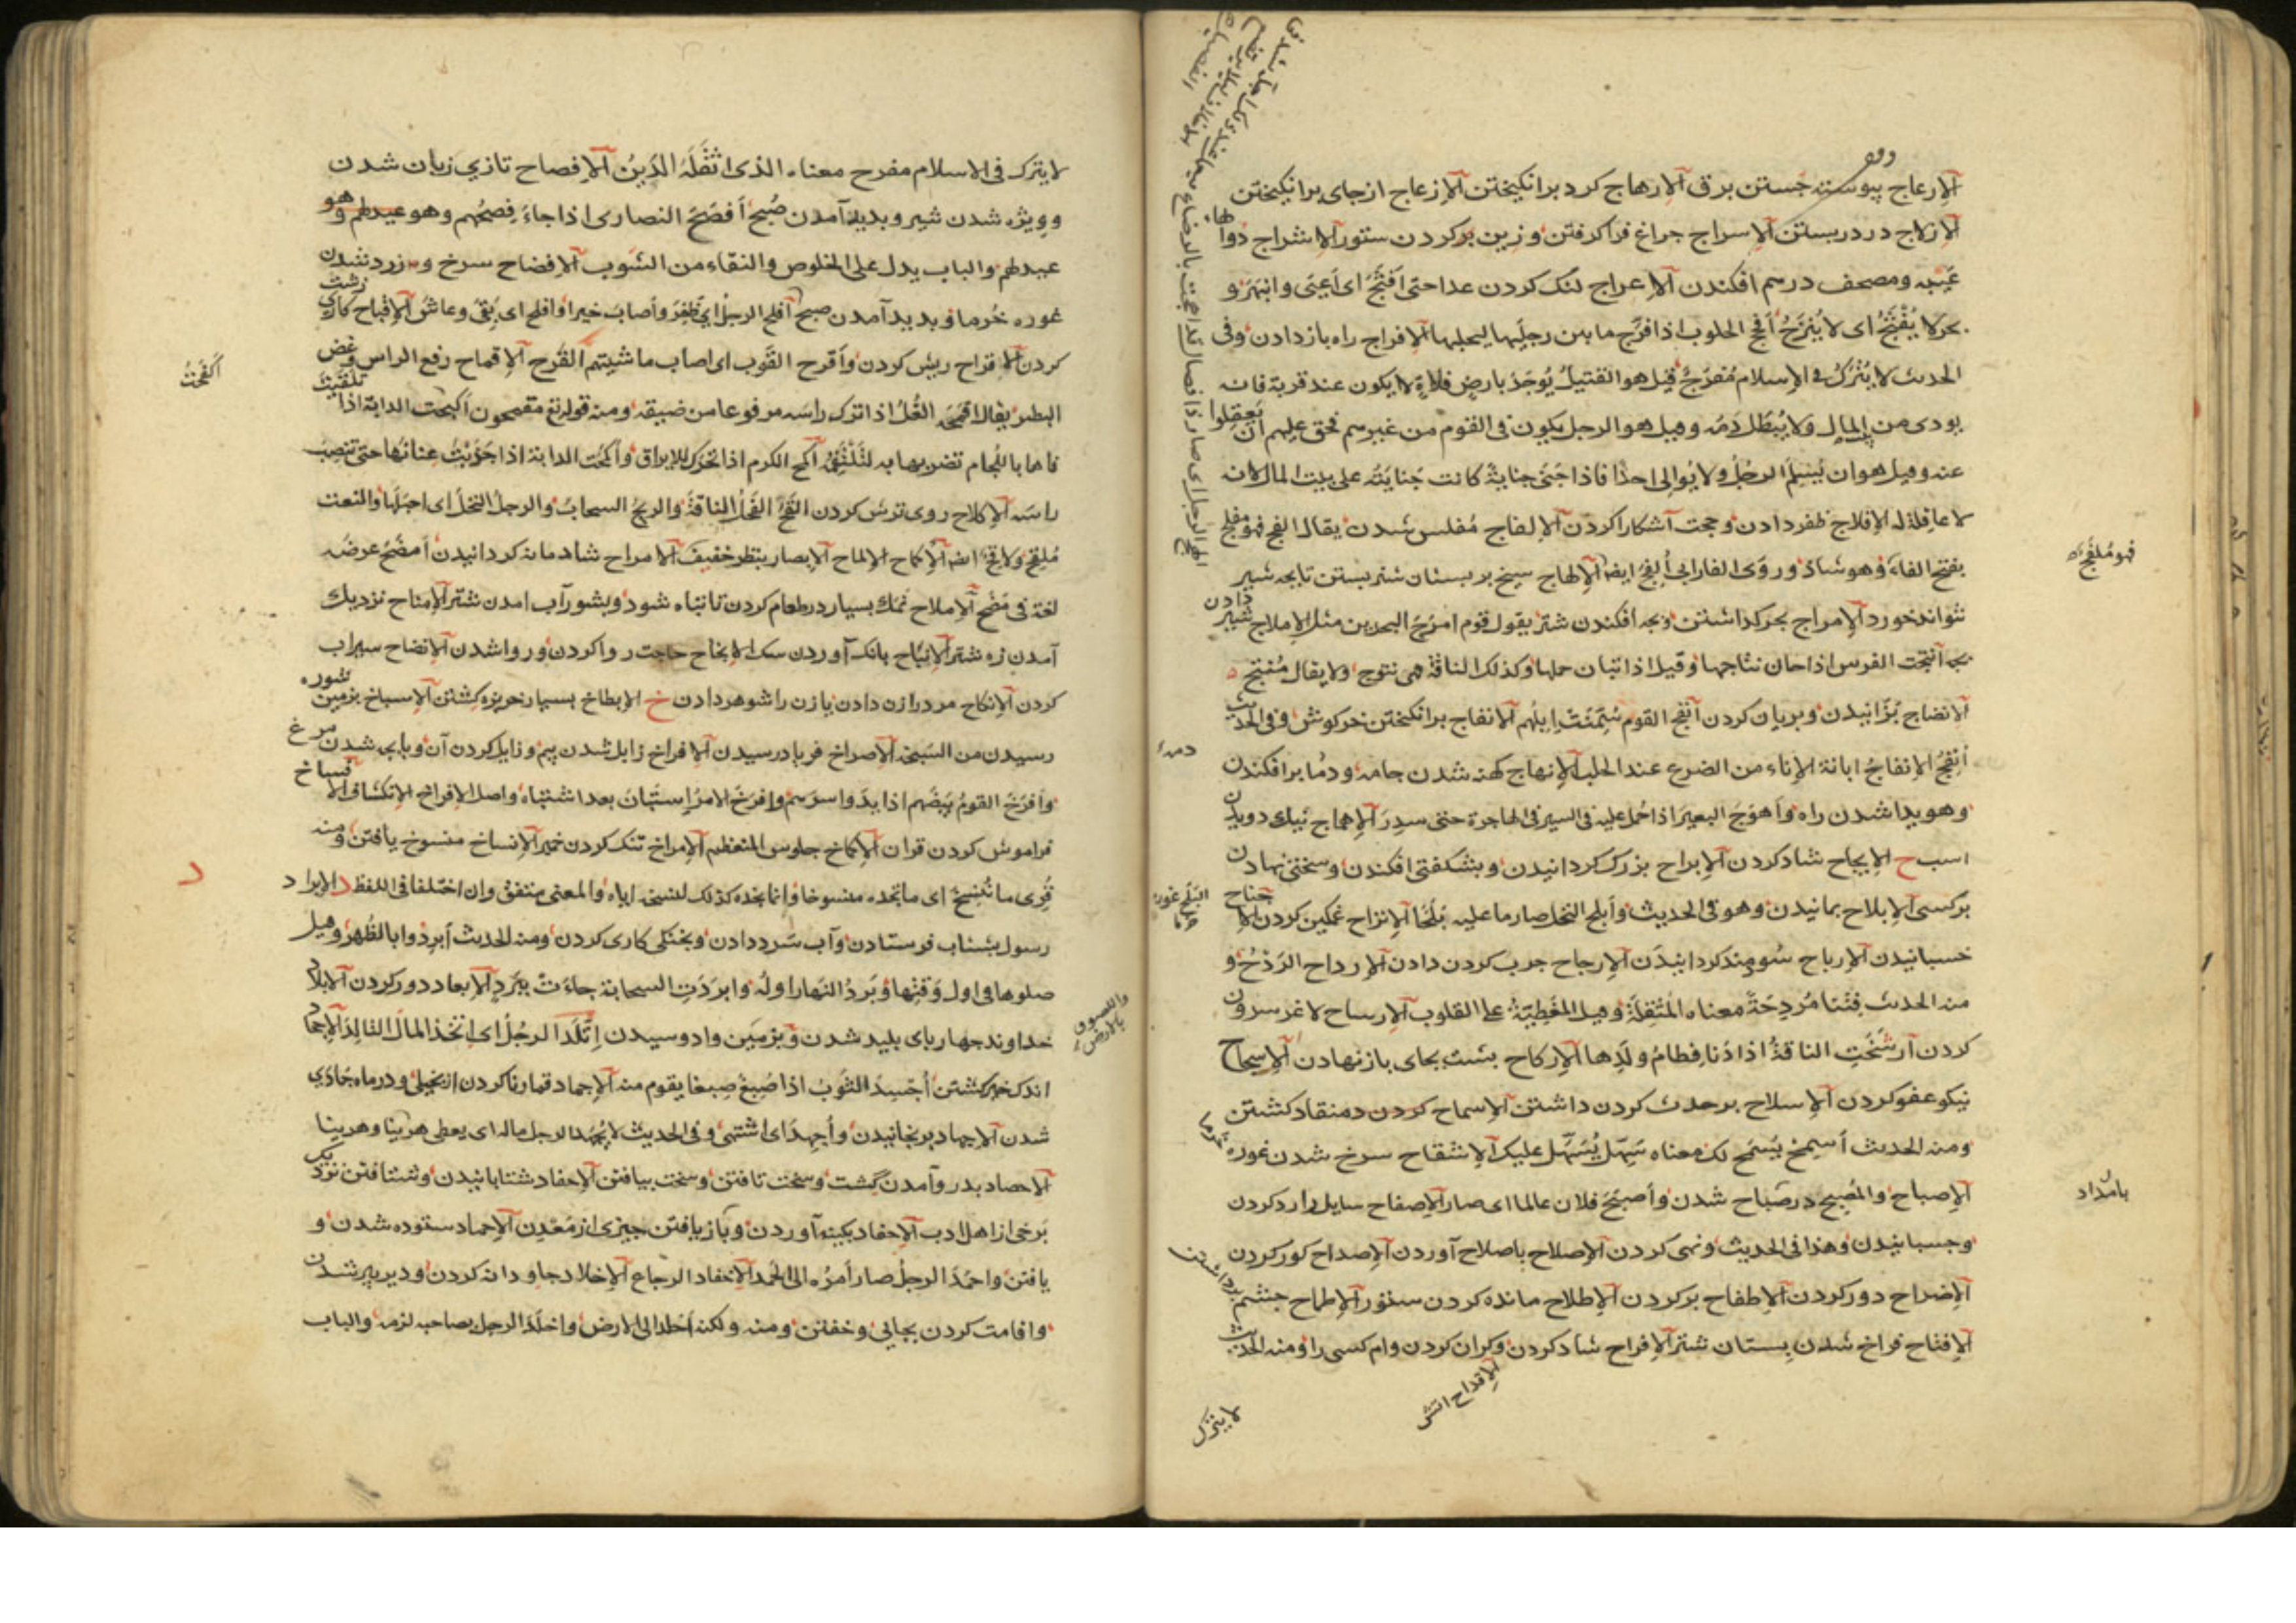 الإرعاج پیوسته جستن برق الإرهاج کرد برانکیختن الإزعاج ازجای برانکیختن
الإزلاج در دربستن الإسراج جراغ فراکرفتن وزین برکردن ستور الإشراج
عیبه ومصحف درهم افکندن الإعراج لنک کردن عدا حتی أفثج ای أعیی وانبهر و
بحر لا یفثج ای لا ینزح أفج الحلوب اذا فرج ما بین رجلیها لیحلبها الإفراج راه بازدادن وفی
الحدیث لا یترک فی الإسلام مفرج قیل هو القتیل یوجد بارض فلاة لا یکون عند قریة فانه
یودی من المال ولا یبطل دمه وقیل هو الرجل یکون فی القوم من غیرهم فحق علیهم أن یعقلوا
عنه وقیل هو ان یسلم الرجل ولا یوالی احدا فاذا جنی جنایة کانت جنایته علی بیت المال لانه
لا عاقلة له الإفلاج ظفر دادن وحجت آشکارا کردن الإلفاج مفلس شدن یقال الفج فهو ملفج
بفتح الفاء وهو شاذ وروی الفارابی ألفج ایضا الإلهاج سیخ بر بستان شتر بستن تا بجه شیر
نتواند خورد الإمراج بجرکذاشتن وبجه افکندن شتر یقول قوم امرج البحرین مثل الإملاج شیر دادن
بجه أنتجت الفرس اذا حان نتاجها وقیل اذا استبان حملها وکذلک الناقة فهی نتوج ولا یقال منتج
الانضاج بزانیدن وبریان کردن أنفج القوم سمنت إبلهم الانفاج برانکیختن خرکوش وفی الحدیث
أنفج الإنفاج ابانة الإناء من الضرع عند الحلب الإنهاج کهنه شدن جامه ودما برافکندن
وهویدا شدن راه وأهوج البعیر اذا حمل علیه فی السیر فی الهاجرة حتی سدر الإهماج نیک دویدن
اسب ح الإبجاح شاد کردن الإبراح بزرک کردانیدن وبشکفتی افکندن وسختی نهادن
برکسی الإبلاح بمانیدن وهو فی الحدیث وأبلح النخل صار ما علیه بلحا الإتراح غمکین کردن الإجناح
خسبانیدن الإرباح سومند کردانیدن الإرجاح جرب کردن دادن الإرداح الردح و
منه الحدیث فتنا مردحة معناه المثقلة وقیل المغطیة علی القلوب الإرساح لاغر سرون
کردن أرشحت الناقة اذا دنا فطام ولدها الإرکاح بشت بجای بازنهادن الإسجاح
نیکو عفو کردن الإسلاح بر حدث کردن داشتن الإسماح کردن دمنقاد کشتن
ومنه الحدیث أسمح یسمح لک معناه سهل یسهل علیک الإشقاح سرخ شدن غوره خرما
الإصباح والمصبح در صباح شدن وأصبح فلان عالما ای صار الإصفاح سایل را رد کردن
وجسبانیدن وهذا فی الحدیث ونهی کردن الإصلاح باصلاح آوردن الإصداح کور کردن
الإضراح دور کردن الإطفاح برکردن الإطلاح مانده کردن ستور الإطماح جشم برداشتن
الإفتاح فراخ شدن بستان شتر الإفراح شاد کردن وکران کردن وام کسی را ومنه الحدیث
الإقداح اتش
لا یترک
فهو ملفج
بامداد
دمه
البلح غوره خرما
لا یترک فی الاسلام مفرح معناه الذی اثقله الدین الإفصاح تازی زبان شدن
وویژه شدن شیر وبدید آمدن صبح أفصح النصاری اذا جاء فصحهم وهو عیدهم وهو
عیدهم والباب یدل علی الخلوص والنقاء من الشوب الإفضاح سرخ وزرد شدن
غوره خرما وبدید آمدن صبح أفلح الرجل ای ظفر وأصاب خیرا وافلح ای بقی وعاش الإقباح کار زشت
کردن الإقراح ریش کردن وأقرح القوم ای اصاب ماشیتهم القرح الإقماح رفع الراس وغض
البطر یقال اقمحه الغل اذا ترک راسه مرفوعا من ضیقه ومنه قوله تع مقمحون أکبحت الدابة اذا تلقیت
فاها باللجام تضربها به لتلتقمه أکح الکرم اذا تحرک للإیراق وأکمحت الدابة اذا جذبت عنانها حتی تنصب
راسه الإکلاح روی ترش کردن القح الفحل الناقة والریح السحاب والرجل النخل ای احبلها والنعت
ملقح ولاقح ایضا الإلماح الإبصار بنظر خفیف الإمراح شادمانه کردانیدن أمضح عرضه
لغة فی مضح الإملاح نمک بسیار در طعام کردن تا تباه شود وبشور آب امدن شتر الإمناح نزدیک
آمدن زه شتر الإنباح بانک آوردن سک الإنجاح حاجت روا کردن وروا شدن الإنضاح سیراب
کردن الإنکاح مرد را زن دادن یا زن را شوهر دادن خ الإبطاخ بسیار خربزه کشتن الإسباخ بزمین شوره
رسیدن من السبخة الإصراخ فریاد رسیدن الإفراخ زایل شدن بیم وزایل کردن آن وبابجه شدن مرغ
وأفرخ القوم بیضهم اذا بدوا سرهم وافرخ الامر استبان بعد اشتباه واصل الإفراخ الانکشاف الإنساخ
فراموش کردن قران الإکماخ جلوس المتعظم الإمراخ تنک کردن خمیر الإنساخ منسوخ یافتن ومنه
قری ما ننسخ ای ما نجده منسوخا وانما نجده کذلک لنسخه ایاه والمعنی متفق وان اختلفا فی اللفظ د الإبراد
رسول بشتاب فرستادن وآب سرد دادن وبخنکی کاری کردن ومنه الحدیث أبردوا بالظهر وقیل
صلوها فی اول وقتها وبرد النهار اوله وابردت السحابة جاءت ببرد الإبعاد دور کردن الإبلاد
خداوند جهاربای بلید شدن وبزمین وادوسیدن إتلد الرجل ای اتخذ المال التالد الإجحاد
اندک خیر کشتن أجسد الثوب اذا صبغ صبغا یقوم منه الإجماد قمار نا کردن از بخیلی ودر ماه جمادی
شدن الإجهاد برنجانیدن وأجهد ای اشتهی وفی الحدیث لا یجهد الرجل ماله ای یعطی هربنا وهربنا
الاحصاد بدروآمدن کشت وسخت تافتن وسخت بیافتن الإحفاد شتابانیدن وشتافتن نزدیک
برخی از اهل ادب الإحقاد بکینه آوردن وباز یافتن جیزی از معدن الإحماد ستوده شدن و
یافتن واحمد الرجل صار أمره الی الحمد الإخفاد الرجاع الإخلاد جاودانه کردن ودیر پیر شدن
واقامت کردن بجایی وخفتن ومنه ولکنه أخلد الی الارض واخلد الرجل بصاحبه لزمه والباب
أکفحت
د
واللصوق بالارض